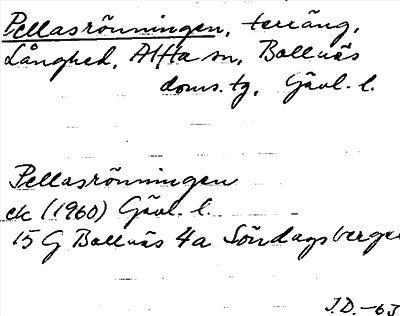 Pellasrönningen, terräng,
Långhed, Alfta sn, Bollnäs
doms.tg, Gävl. l.
Pellasrönningen
ek (1960) Gävl. l.
15 G Bollnäs 4a Söndagsberget
J.D.-63